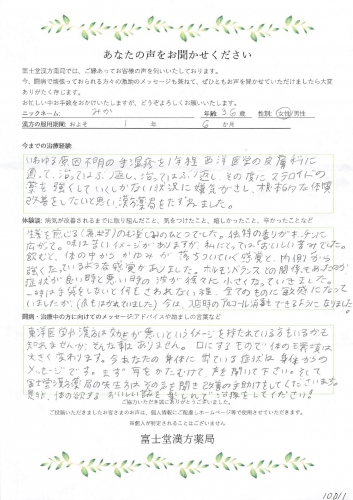 あなたの声をお聞かせください
富士堂漢方薬局では、ご縁あってお客様の声を伺いいたしております。
今、闘病で頑張っておられる方々の激励のメッセージも兼ねて、ぜひともお声を聞かせていただけましたら大変
ありがたく存じます。
お忙しい中お手数をおかけいたしますが、どうぞよろしくお願いいたします。
ニックネーム: みか 年齢: 36 歳 性別: 女性/男性
漢方の服用期間: およそ 1 年 6 か月
今までの治療経緯:
いわゆる原因不明の蕁麻疹を1年程西洋医学の皮膚科に
通って、治ってはぶり返し、治ってはぶり返し、その度にステロイドの
薬を強くしていくしかない状況に嫌気がさし、根本的な体質
改善をしたいと思い漢方薬局をたずねました。
体験談: 病気が改善されるまでに取り組んだこと、気をつけたこと、嬉しかったこと、辛かったことなど
生薬を煎じる(煮出す)のも楽しみのひとつでした。独特の香りがキッチンに
広がって。味は苦いイメージがありますが、私にとってはおいしい苦みでした。
飲むと、体の中からかゆみが落ちついていく感覚と、内側から
強くなっているような感覚がありました。ホルモンバランスとの関係もあったのか
症状が良い時と悪い時の波が徐々に小さくなっていきました。
一時は手袋をしないと何もさわれない程、全てのものに敏感になって
いましたが、(水もはがれていました)今は、現時のアルコール消毒できるようになりました
闘病・治療中の方に向けてのメッセージアドバイスや励ましの言葉など
東洋医学や漢方は効きが悪いというイメージを持たれている方もいるかも
知れませんが、そんな事はありません。口にするもので体の半分は
大きく変わります。今あなたの身体に出ている症状は身体からの
メッセージです。まず耳をかたむけて、声を聞いて下さい。そして
富士堂漢方薬局の先生方はその声を聞き改善の手助けをしてくださいます。
是非、体の欲するおいしい薬を楽しんで治療をしてください!
ご協力いただき誠にありがとうございました。
ご投稿いただきましたお客さまのお声は、個人情報にご配慮しホームページ等で使用させていただきます。
※個人が特定されることはございません
富士堂漢方薬局
10011